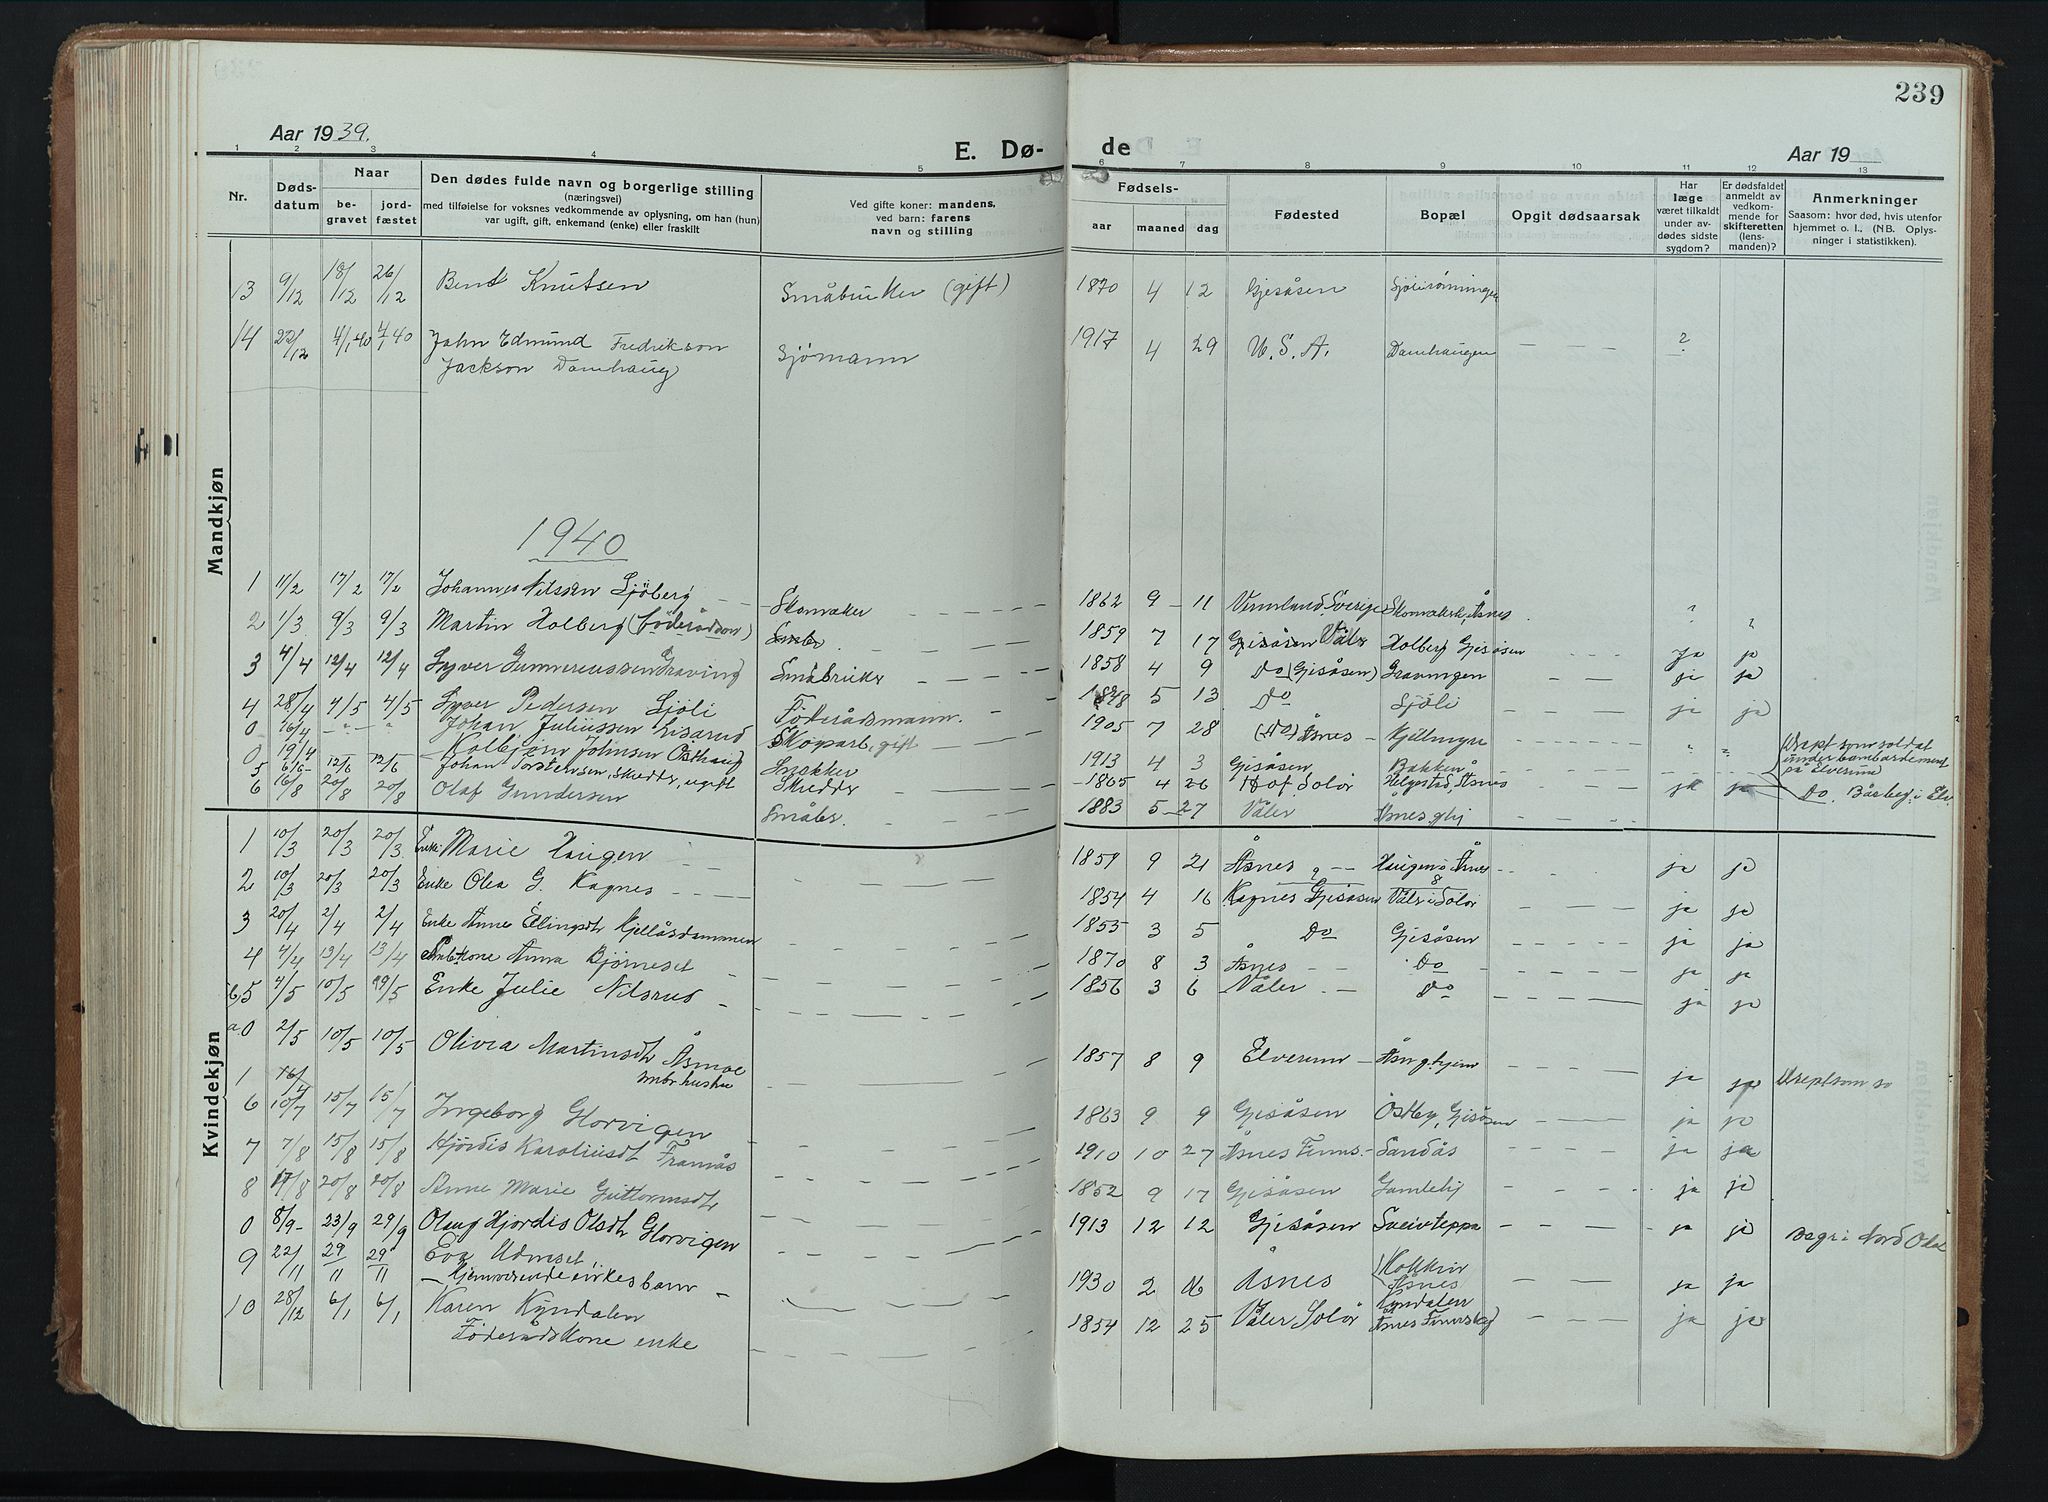 239
Aar 1939.
E. Dø-
de
Aar 19
1 2 3 4 5 6 7 8 9 10 11 12 13
Nr.
Døds-
datum
Naar
be-
gravet
jord-
fæstet
Den dødes fulde navn og borgerlige stilling
(næringsvei)
med tilføielse for voksnes vedkommende av oplysning, om han (hun)
var ugift, gift, enkemand (enke) eller fraskilt
Ved gifte koner: mandens,
ved barn: farens
navn og stilling
Fødsels-
aar
maaned
dag
Fødested
Bopæl
Opgit dødsaarsak
Har
læge
været tilkaldt
under av-
dødes sidste
sygdom?
Er dødsfaldet
anmeldt av
vedkom-
mende for
skifteretten
(lens-
manden)?
Anmerkninger
Saasom: hvor død, hvis utenfor
hjemmet o. l., (NB. Oplys-
ninger i statistikken).
Mandkjøn
13 9/12 18/12 26/12 Bent Knutsen Småbruker (gift) 1870 4 12 Gjesåsen
14 22/12 4/1 40 4/1 40 John Edmund Fredrikson Sjömann 1917 4 29 U.S.A. Damhaugen ?
Jackson Damhaug
1940
1 11/2 17/2 17/2 Johannes Nilssen Sjöberg Skomaker 1862 9 11 Vermland Sverige Åsnes
2 1/3 9/3 9/3 Martin Holberg 1859 7 17 Gjesåsen Våler Holberg Gjesåsen ja ja
3 4/4 12/4 12/4 Syver Gunnereussen Graving Småbruker 1858 4 9 Do (Gjesåsen) Gravingen ja ja
4 28/4 4/5 4/5 Syver Pedersen Sjöli Föderådsmann 1848 5 13 Do Sjöli ja ja
0 16/4 Johan Juliussen Lisarud Skogarb, gift 1905 7 28 (Do) Åsnes Kjellmyra
0 19/4 Kolbjörn Johnsen Östhaug Snekker 1913 4 3 Gjesåsen Bakken Drept som soldat
under bombardement
på Elverum
5 12/6 12/6 Johan Torstensen, skredder, ugift Skredder 1865 4 26 Hof Solör Helgestad, Åsnes ja ja Do
6 16/8 20/8 20/8 Olaf Gundersen Småbr. 1883 5 27 Våler Åsnes
Kvindekjøn
1 10/3 20/3 20/3 Enke Marie Haugen 1859 9 21 Åsnes Haugen i Åsnes ja ja
2 10/3 20/3 20/3 Enke Olea G. Kagnes 1854 4 16 Kagnes Gjesåsen Våler i Solör ja ja
3 20/4 2/4 2/4 Enke Anne Ellingsdt Kjellåsdammen 1855 3 5 Do Gjesåsen ja ja
4 4/4 13/4 13/4 Anna Bjørneset 1870 8 3 Åsnes Do ja ja
5 4/5 10/5 Enke Julie Nilsrud 1856 3 6 Våler Do ja ja
0 2/5 10/5 10/5 Olivia Martinsdt Åsmoe 1857 8 9 Elverum ja ja Drept som so
6 10/7 15/7 15/7 Ingeborg Glorvigen 1863 9 9 Gjesåsen Östby, Gjesåsen ja ja
7 7/8 15/8 15/8 Hjördis Karoliusdt Framås 1910 10 27 Åsnes Finns. Sandås ja ja
8 17/8 20/8 20/8 Anne Marie Guttormsdt 1852 9 17 Gjesåsen Gamlehj ja ja
0 8/9 23/9 29/9 Olaug Hjördis Olsdt Glorvigen 1913 12 12 Gjesåsen Sveivteppa ja ja Begr i Nord Odal
9 22/11 29/11 29/11 Eva Udneset 1930 2 Åsnes Åsnes ja ja
Hjemværende
10 28/12 6/1 6/1 Karen Kyndalen 1854 12 25 Våler Solör Kyndalen Åsnes Finnskog ja ja
Föderådskone enke